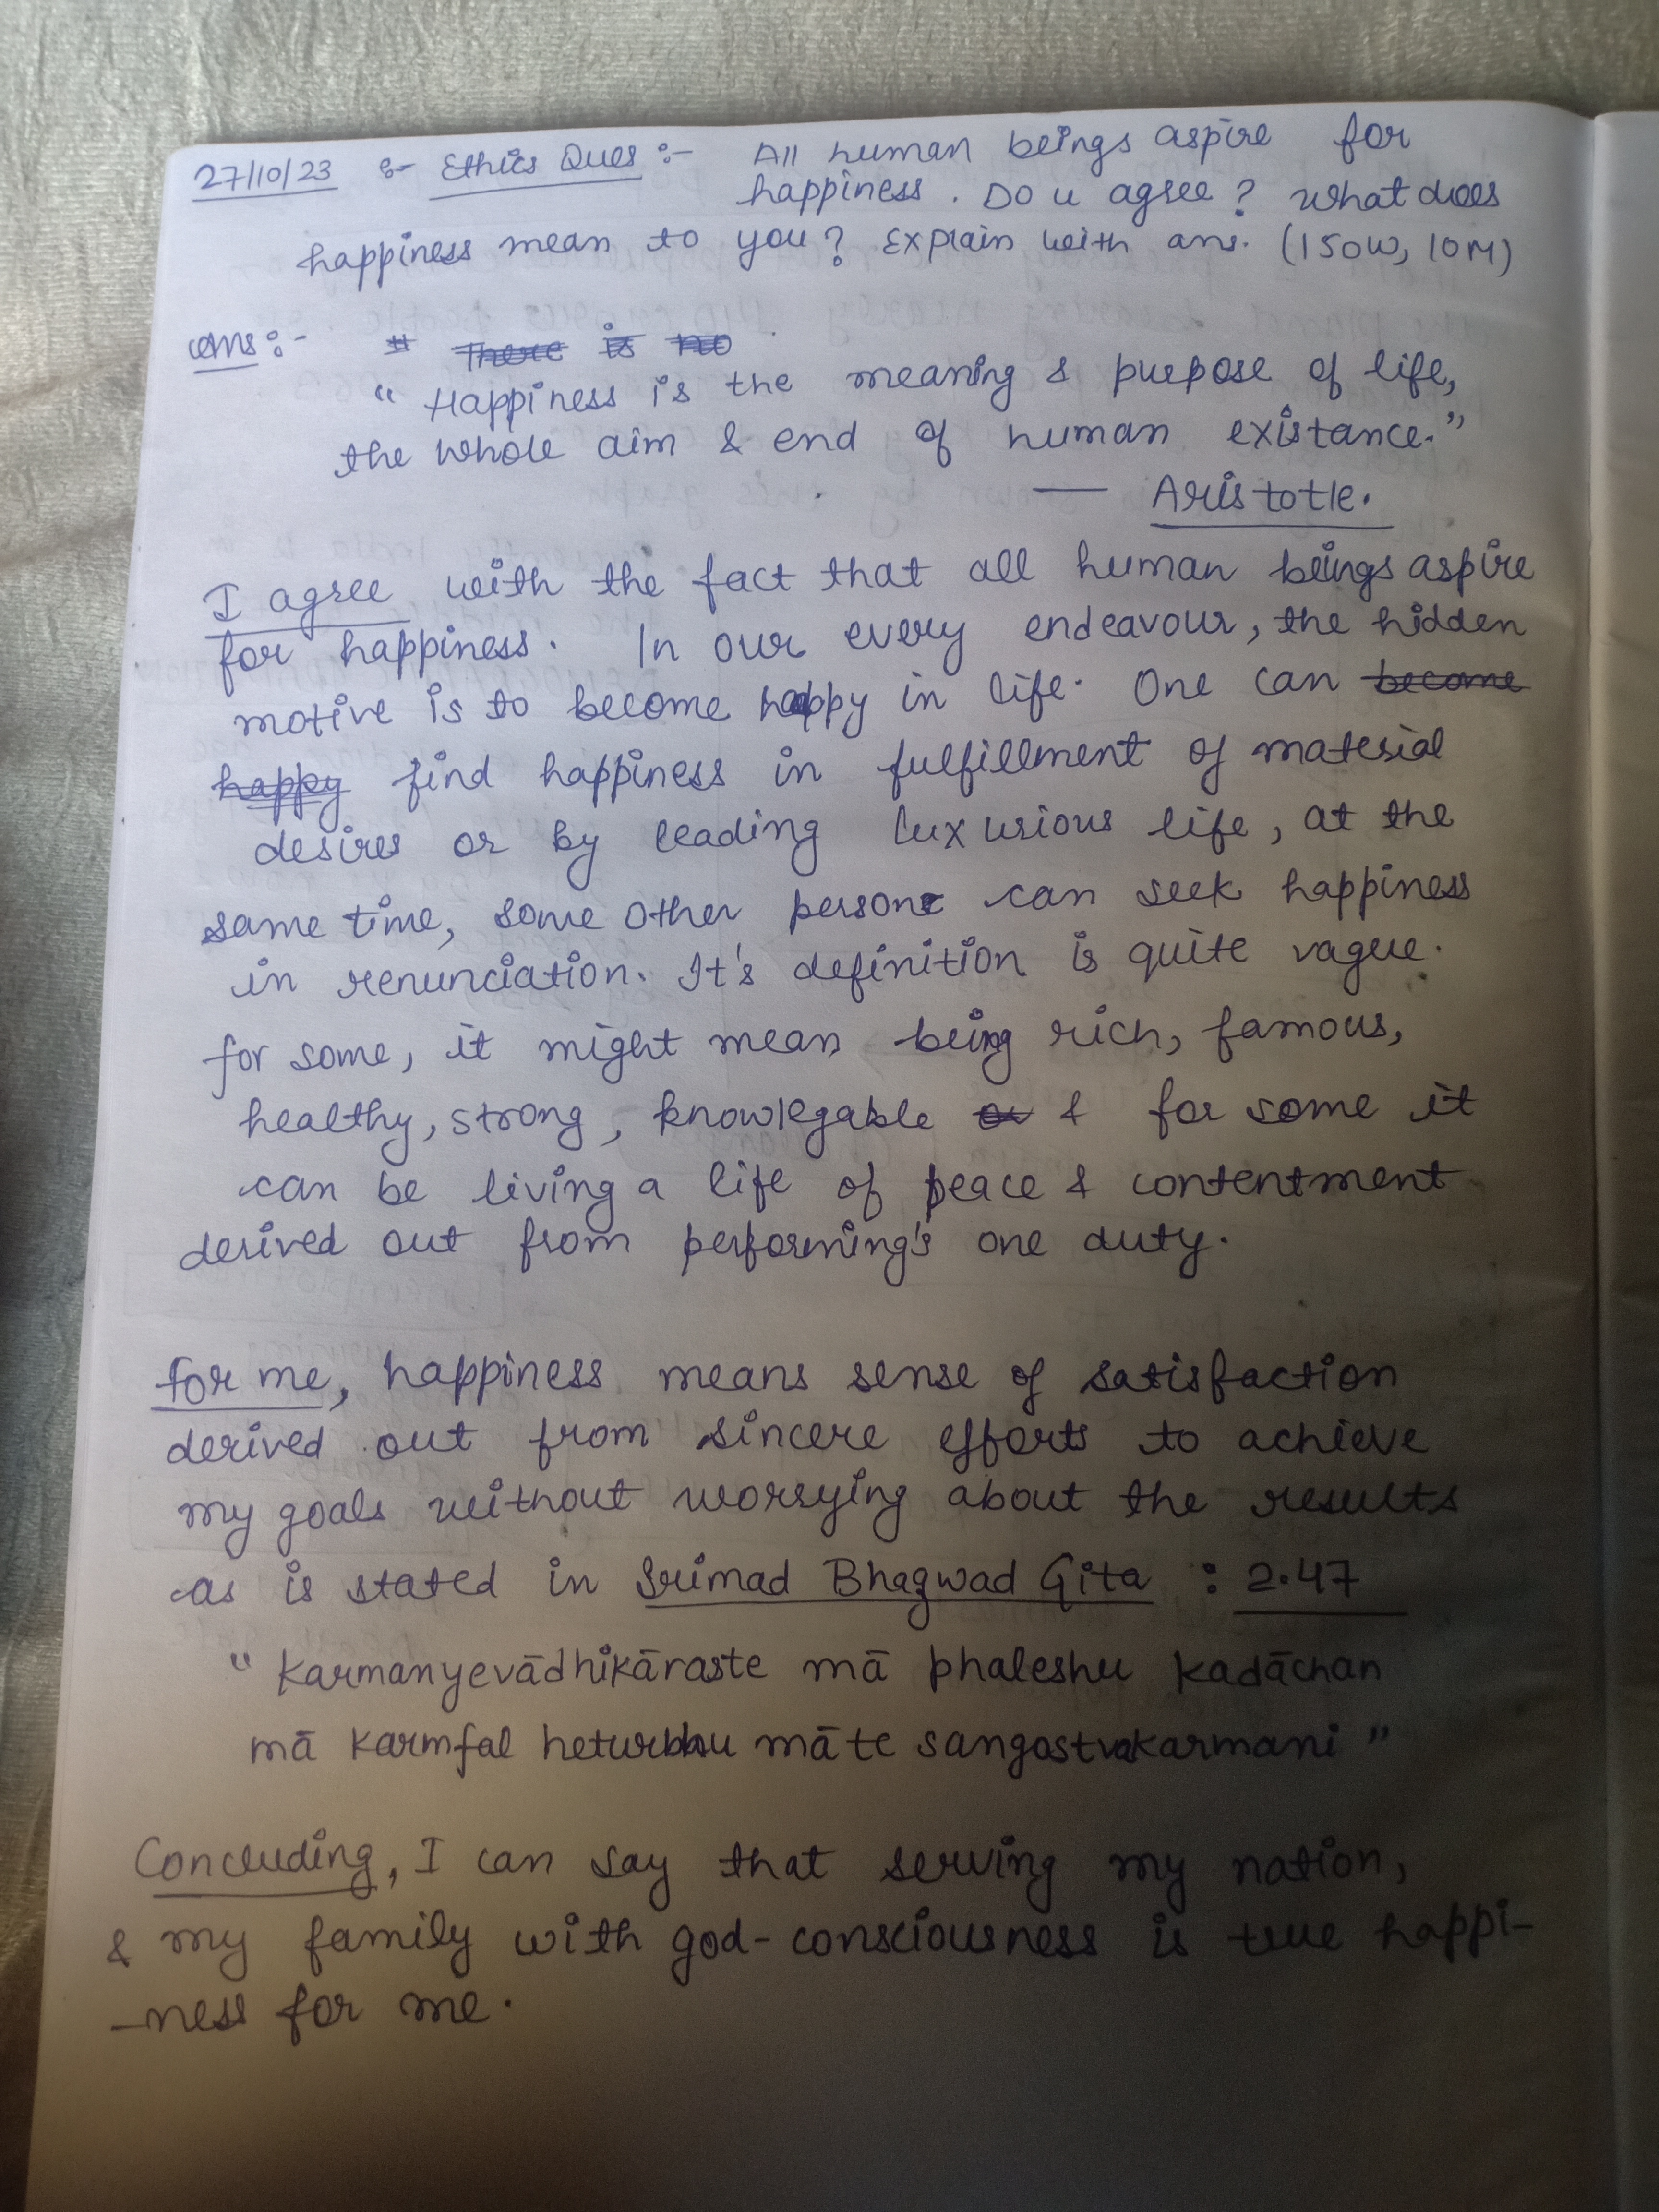 27/10/23 :- Ethics Ques :- All human beings aspire for
happiness. Do u agree? What does
happiness mean to you? Explain with ans. (150W, 10M)
ans:- There is no
"Happiness is the meaning & purpose of life,
the whole aim & end of human existance."
— Aristotle.
I agree with the fact that all human beings aspire
for happiness. In our every endeavour, the hidden
motive is to become happy in life. One can become
happy find happiness in fulfillment of material
desires or by leading luxurious life, at the
same time, some other person can seek happiness
in renunciation. It's definition is quite vague.
for some, it might mean being rich, famous,
healthy, strong, knowlegable or & for some it
can be living a life of peace & contentment
derived out from performing's one duty.
for me, happiness means sense of satisfaction
derived out from sincere efforts to achieve
my goals without worrying about the results
as is stated in Srimad Bhagwad Gita : 2.47
"Karmanyevādhikāraste mā phaleshu kadāchan
mā karmfal heturbhu mā te sangostvakarmani"
Concluding, I can say that serving my nation,
& my family with god-consciousness is true happi-
-ness for me.